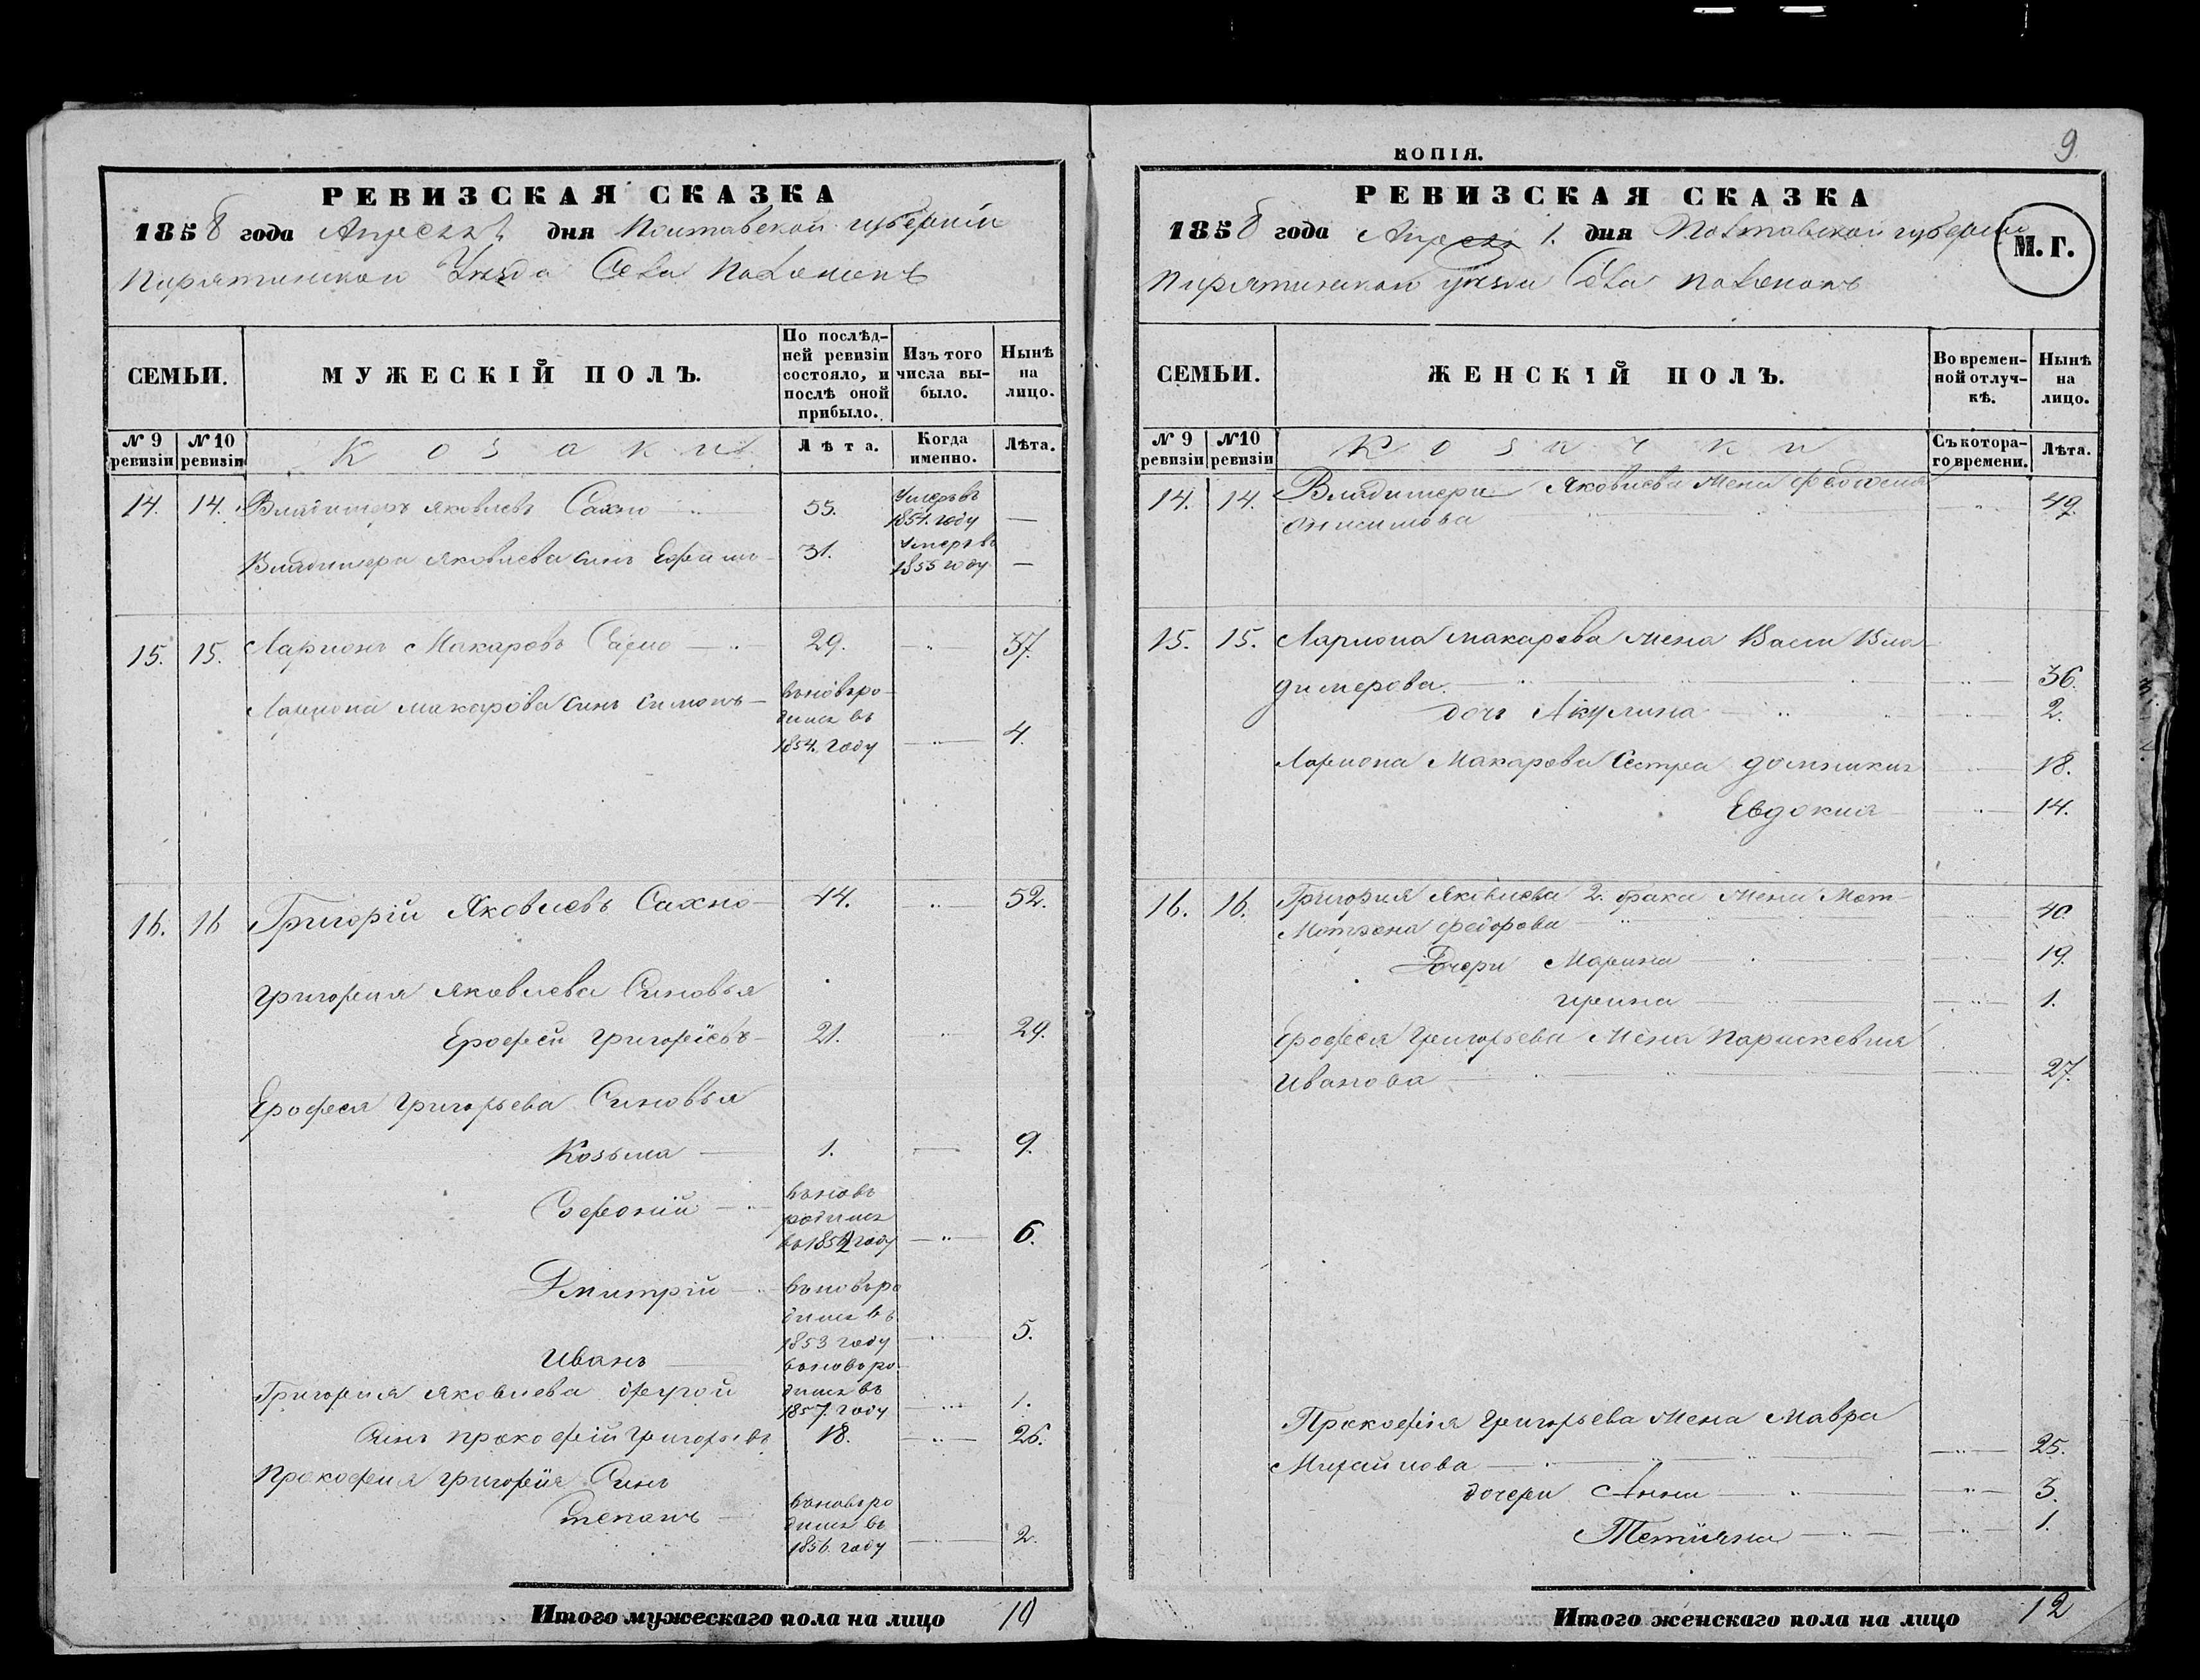 РЕВИЗСКАЯ СКАЗКА
1858 года Апреля 1 дня Полтавской губернiи
Пирятинскои Уезда Села
СЕМЬИ.
МУЖЕСКІЙ ПОЛЪ.
По послѣд-
ней ревизіи
состояло, и
послѣ оной
прибыло.
Изъ того
числа вы-
было.
Нынѣ
на
лицо.
№ 9
ревизіи
№ 10
ревизіи
Козаки
Лѣта.
Когда
именно.
Лѣта.
14. 14. Владимеръ Яковлевъ Сахно 55. Умеръ въ
1854. году —
Владимера Яковлева синъ Ефимъ 31. Умеръ въ
1855 году —
15. 15. Ларионъ Макаровъ Сахно 29. 37.
Лариона Макарова синъ Симонъ вьновьро
дился въ
1854. году 4.
16. 16 Григорій Яковлевъ Сахно 44. 52.
Григория Яковлева Синовья
Ерофей Григориевъ 21. 29.
Ерофея Григорьева Синовья
Козьма 1. 9.
Софоний вьновь
родился
в 1852 году 6.
Дмитрій вьновьро
дился въ
1853 году 5.
Иванъ вьновьро
Григория Яковлева другой дился въ
1857. году 1.
Синъ прокофий Григорьевъ 18. 26.
Прокофия Григорія Синъ
Степанъ вьновьро
дился въ
1856. году 2.
Итого мужескаго пола на лицо 10
КОПІЯ.
9
РЕВИЗСКАЯ СКАЗКА
1858 года Апреля 1. дня Полтавской губернии
М. Г.
Пирятинскои уезда Села
СЕМЬИ.
ЖЕНСКІЙ ПОЛЪ.
Во времен-
ной отлуч-
кѣ.
Нынѣ
на
лицо.
№ 9
ревизіи
№10
ревизіи
Козачки
Съ котора-
го времени.
Лѣта.
14. 14. Владимера Яковлева Жена Феодосия
Онисимова 49.
15. 15. Лариона Макарова Жена Васи Вла
димерова. 36.
дочь Акулина 2.
Лариона Макарова Сестра домникия 18.
Евдокия 14.
16. 16. Григория Яковлева 2. брака Жена Мот-
Мотрона Федорова 40.
Дочери Марина 19.
ирина 1.
Ерофея Григорьева Жена Параскевия
Иванова 27.
Прокофія Григорьева Жена Мавра
Михайлова 25.
дочери Анна 3.
Тетияна 1.
Итого женскаго пола на лицо 12